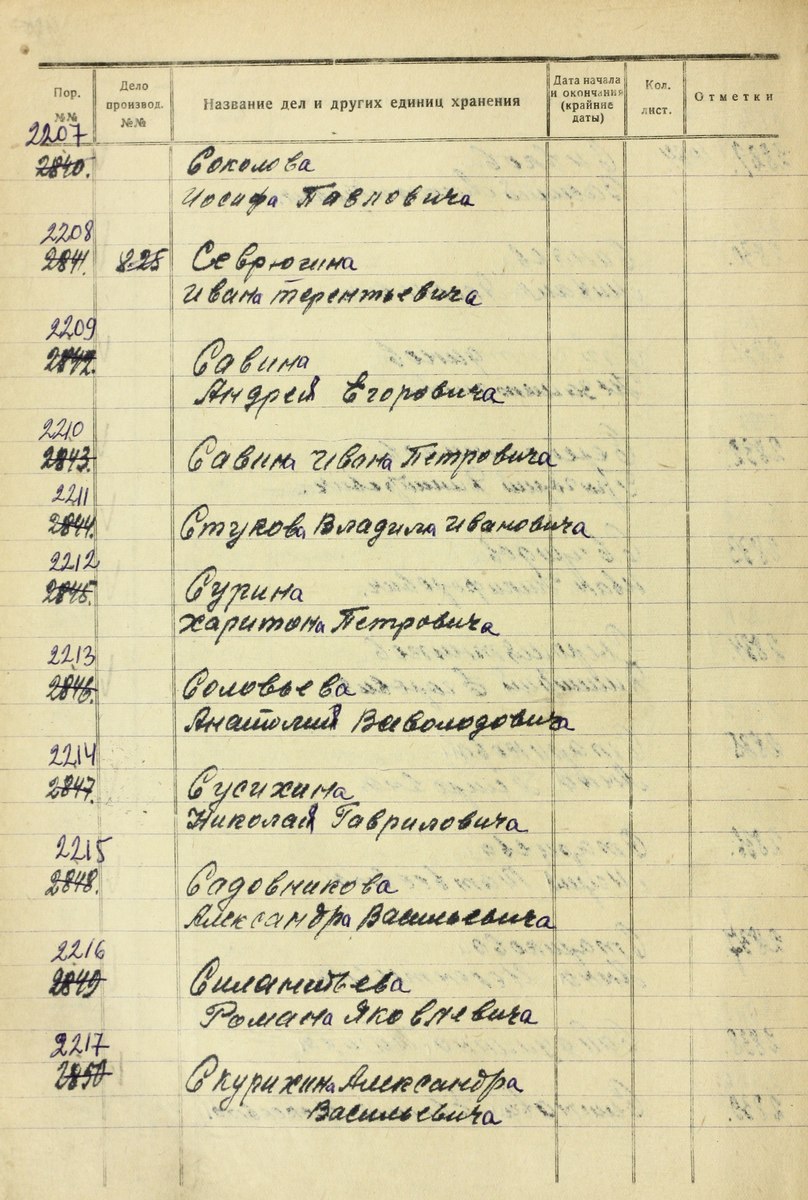 Пор. №№ Дело производ. №№ Название дел и других единиц хранения Дата начала и окончания (крайние даты) Кол. лист. Отметки
2207
2840. Соколова
Иосифа Павловича
2208
2841. 825 Севрюгина
Ивана Терентьевича
2209
2842. Савина
Андрея Егоровича
2210
2843. Савина Ивана Петровича
2211
2844. Стукова Владила Ивановича
2212
2845. Сурина
Харитона Петровича
2213
2846. Соловьева
Анатолия Ваволодовича
2214
2847. Сусихина
Николая Гавриловича
2215
2848. Садовникова
Александра Васильевича
2216
2849 Силантьева
Романа Яковлевича
2217
2850 Скурихина Александра
Васильевича